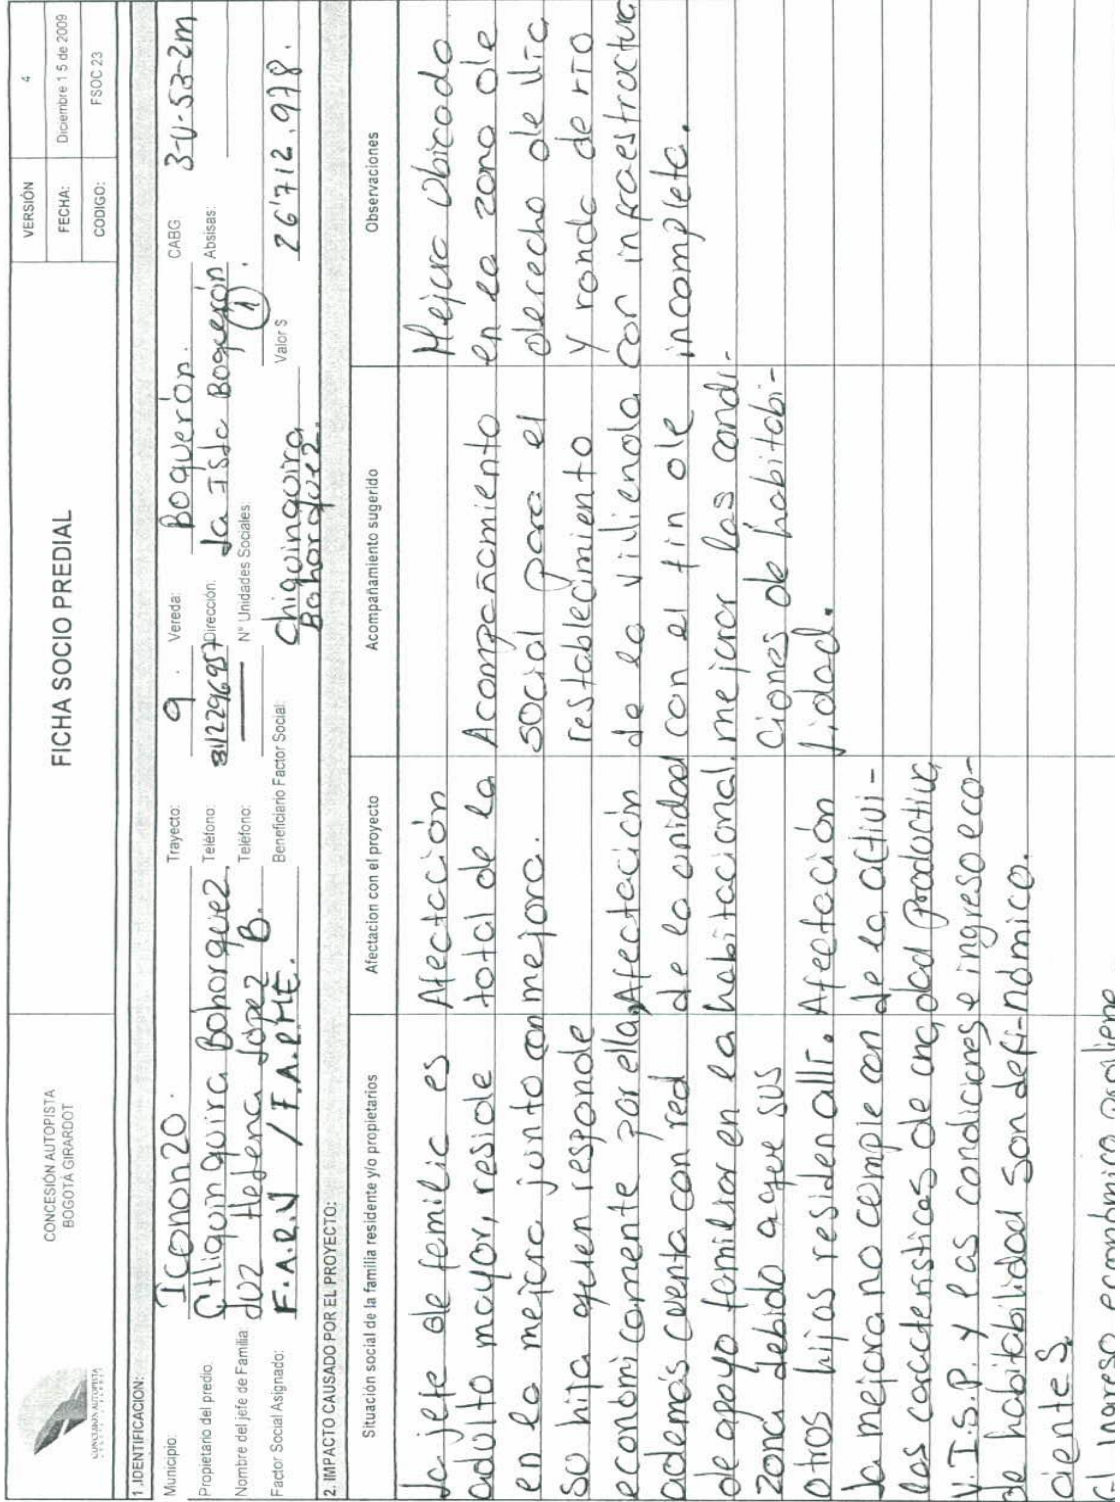 CONCESIÓN AUTOPISTA
BOGOTÁ GIRARDOT
FICHA SOCIO PREDIAL
VERSIÓN 4
FECHA: Diciembre 1 5 de 2009
CODIGO: FSOC 23
1.IDENTIFICACION:
Municipio: Icononzo. Trayecto: 9. Vereda: Boquerón. CABG 3-U-53-2m
Propietario del predio: Chiquinquira Bohorquez. Teléfono: 3112296957 Dirección: La Isla Boquerón Absisas:
Nombre del jefe de Familia: Luz Helena López B. Teléfono: N° Unidades Sociales: (1).
Factor Social Asignado: F.A.R.V / F.A.P.M.E. Beneficiario Factor Social: Chiquinquira Bohorquez. Valor $ 26'712.978.
2. IMPACTO CAUSADO POR EL PROYECTO:
Situación social de la familia residente y/o propietarios
La jefe de familia es
adulto mayor, reside
en la mejora junto con
su hija quien responde
económicamente por ella,
además cuenta con red
de apoyo familiar en la
zona debido a que sus
otros hijos residen allí.
La mejora no cumple con
las características de una
V.I.S.P. y las condiciones
de habitabilidad son defi-
cientes
El ingreso económico proviene
Afectacion con el proyecto
Afectación
total de la
mejora.
Afectación
de la unidad
habitacional.
Afectación
de la activi-
dad productiva
e ingreso eco-
nómico.
Acompañamiento sugerido
Acompañamiento
social para el
restablecimiento
de la vivienda
con el fin de
mejorar las condi-
ciones de habitabi-
lidad.
Observaciones
Mejora ubicada
en la zona de
derecho de vía
y ronda de río
con infraestructura
incompleta.